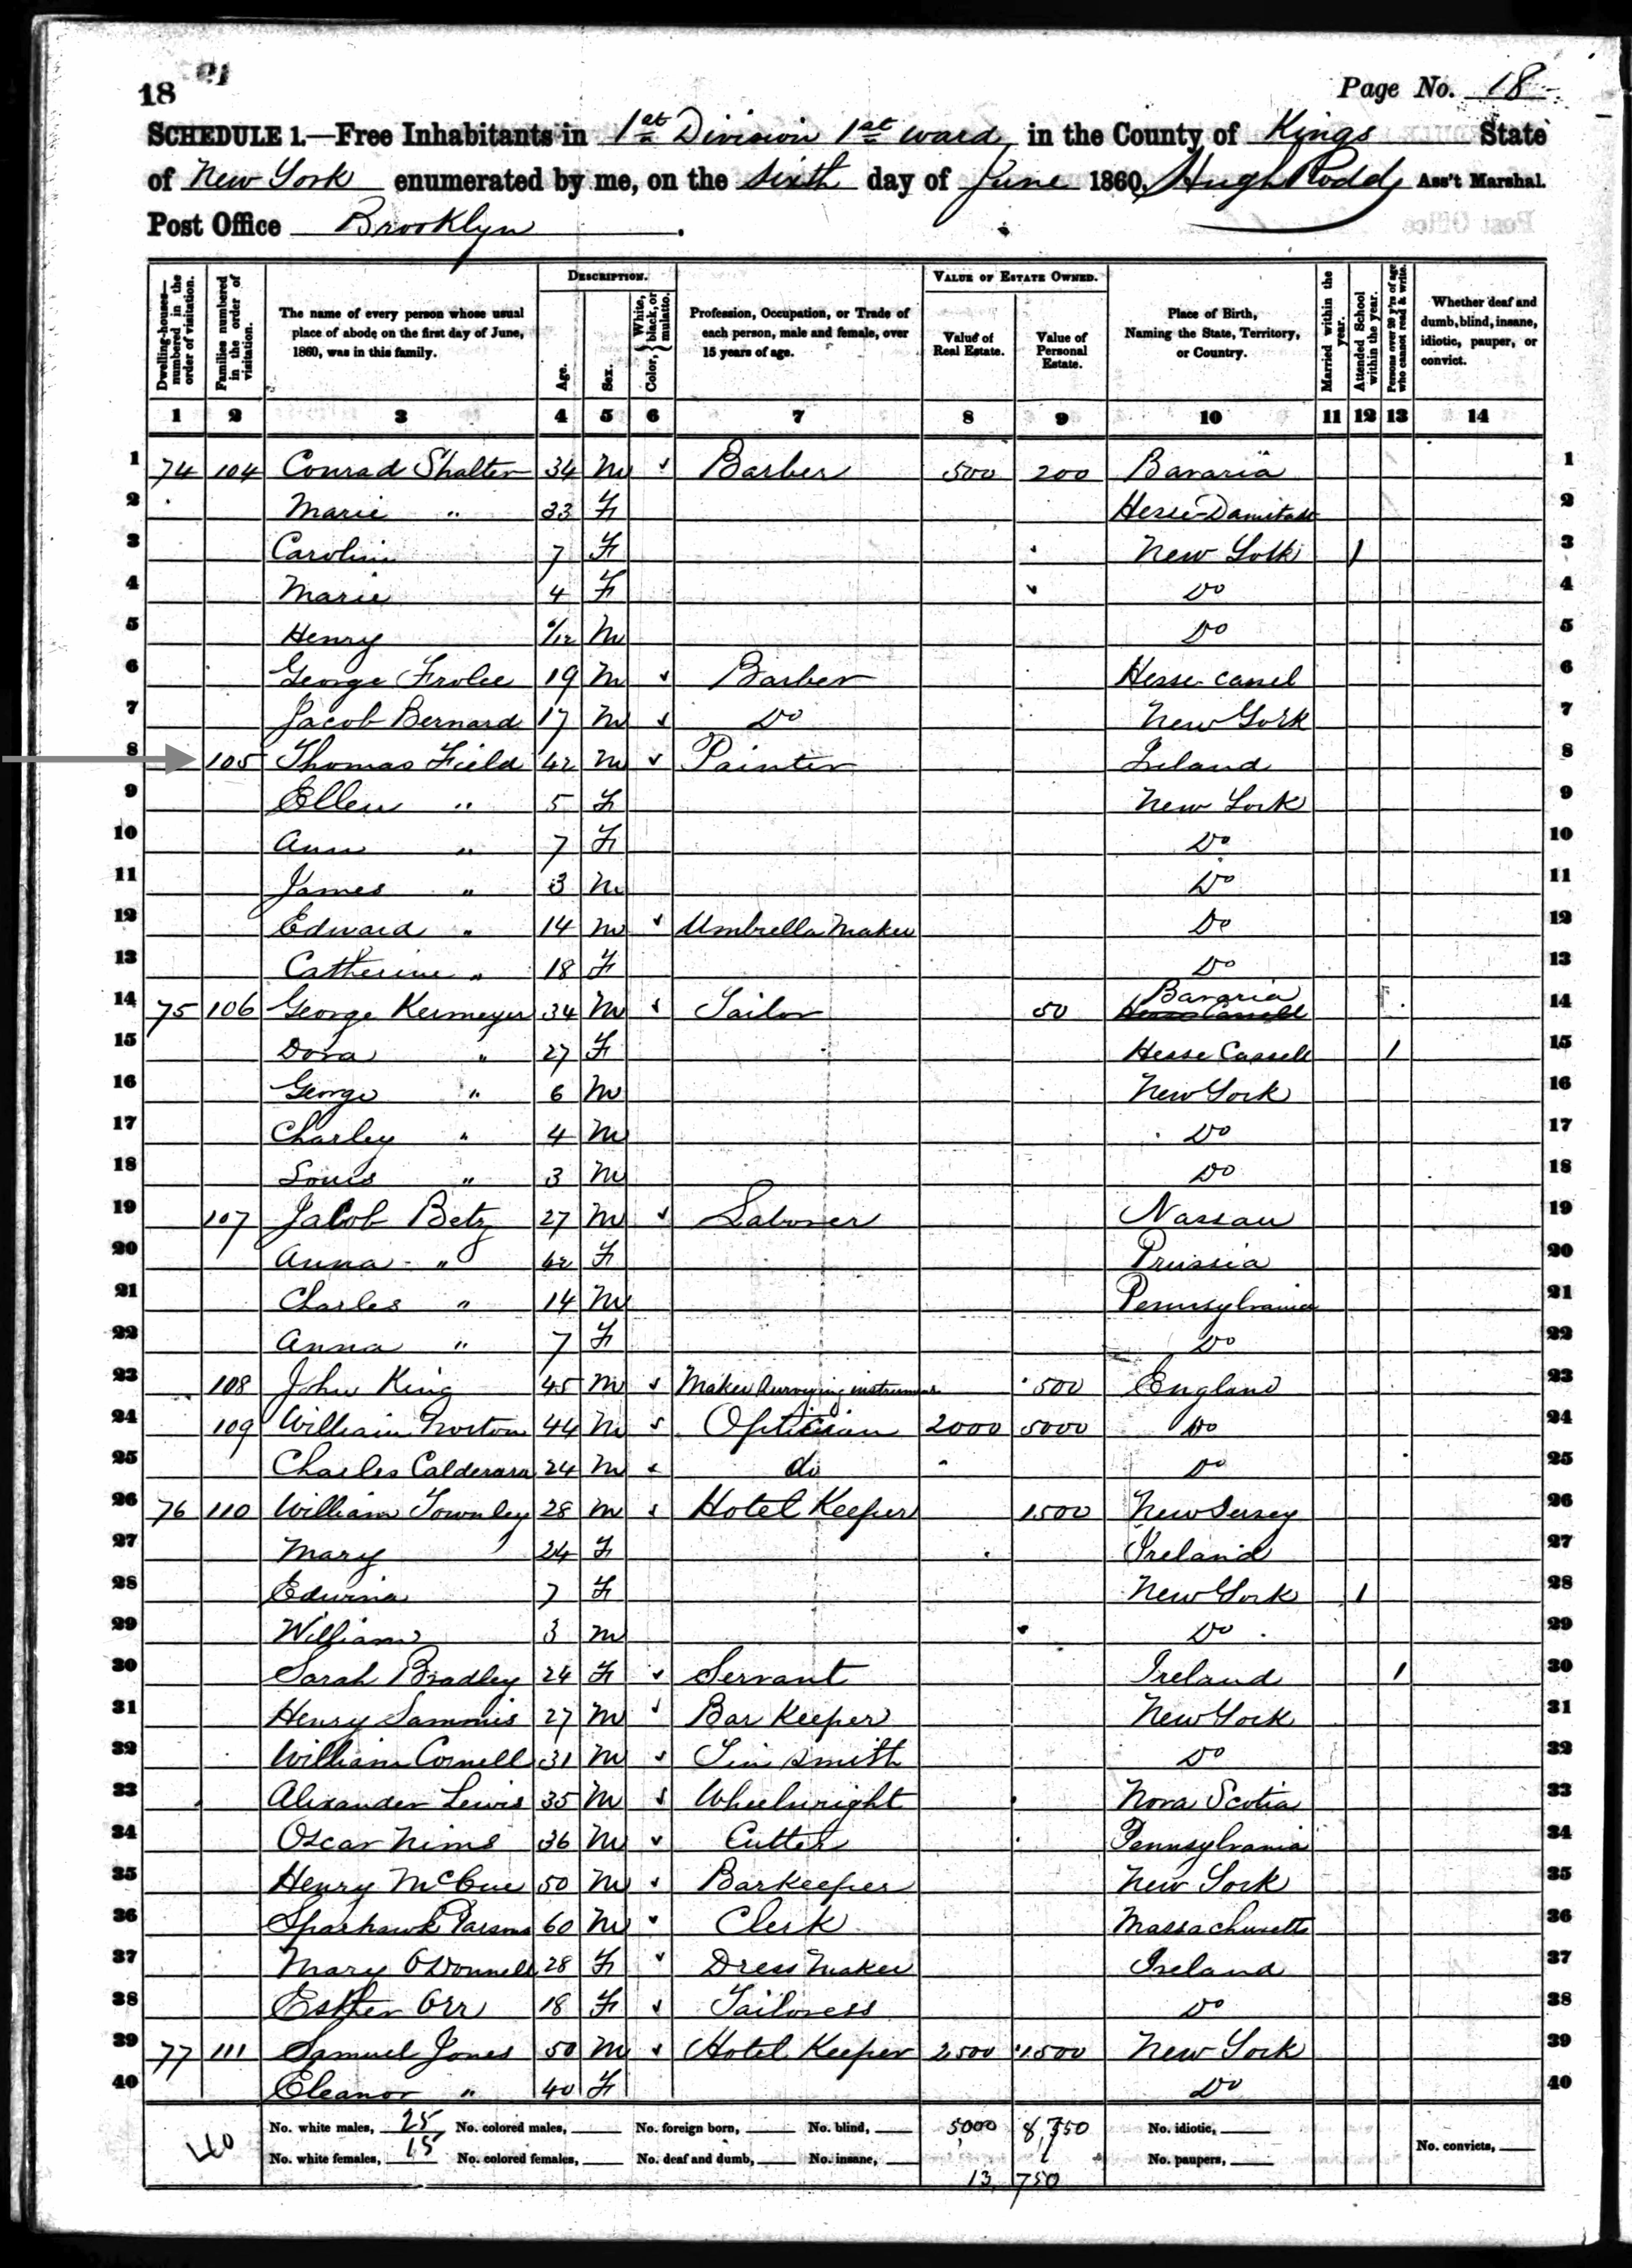 18
Page No. 18
SCHEDULE 1.—Free Inhabitants in 1st Division 1st Ward in the County of Kings State
of New York enumerated by me, on the Sixth day of June 1860. Hugh Ass't Marshal.
Post Office Brooklyn
Dwelling-houses—numbered in the order of visitation.
Families numbered in the order of visitation.
The name of every person whose usual place of abode on the first day of June, 1860, was in this family.
DESCRIPTION.
Age.
Sex.
Color, White, black, or mulatto.
Profession, Occupation, or Trade of each person, male and female, over 15 years of age.
VALUE OF ESTATE OWNED.
Value of Real Estate.
Value of Personal Estate.
Place of Birth, Naming the State, Territory, or Country.
Married within the year.
Attended School within the year.
Persons over 20 y'rs of age who cannot read & write.
Whether deaf and dumb, blind, insane, idiotic, pauper, or convict.
1 2 3 4 5 6 7 8 9 10 11 12 13 14
1 74 104 Conrad Shalter 34 M Barber 500 200 Bavaria 1
2 Marie " 33 F 2
3 Caroline 7 F New York 1 3
4 Marie 4 F Do 4
5 Henry M Do 5
6 George 19 M Barber Hesse-Cassel 6
7 Jacob Bernard 17 M Do New York 7
8 105 Thomas Field 42 M Painter Ireland 8
9 Ellen " 5 F New York 9
10 Ann " 7 F Do 10
11 James " 3 M Do 11
12 Edward " 14 M Umbrella Maker Do 12
13 Catherine " 18 F Do 13
14 75 106 George Kermeyer 34 M Tailor 50 Bavaria 14
15 Dora " 27 F Hesse Cassell 1 15
16 George " 6 M New York 16
17 Charley " 4 M Do 17
18 Louis " 3 M Do 18
19 107 Jacob Betz 27 M Laborer Nassau 19
20 Anna " 42 F Prussia 20
21 Charles " 14 M Pennsylvania 21
22 Anna " 7 F Do 22
23 108 John King 45 M Maker Surveying instruments 500 England 23
24 109 William Norton 44 M Optician 2000 5000 Do 24
25 Charles Calderara 24 M do Do 25
26 76 110 William Townley 28 M Hotel Keeper 1500 New Jersey 26
27 Mary 24 F Ireland 27
28 Edwina 7 F New York 1 28
29 William 3 M Do 29
30 Sarah Bradley 24 F Servant Ireland 1 30
31 Henry Sammis 27 M Bar Keeper New York 31
32 William Cornell 31 M Tin Smith Do 32
33 Alexander Lewis 35 M Wheelwright Nova Scotia 33
34 Oscar Nims 36 M Cutter Pennsylvania 34
35 Henry McCue 50 M Barkeeper New York 35
36 Sparhawk Parsons 60 M Clerk Massachusetts 36
37 Mary O'Donnell 28 F Dress Maker Ireland 37
38 Esther Orr 18 F Tailoress Do 38
39 77 111 Samuel Jones 50 M Hotel Keeper 2500 1500 New York 39
40 Eleanor " 40 F Do 40
40
No. white males, 25 No. colored males, No. foreign born, No. blind, 5000 8,750 No. idiotic,
No. white females, 15 No. colored females, No. deaf and dumb, No. insane, No. paupers, No. convicts,
13,750